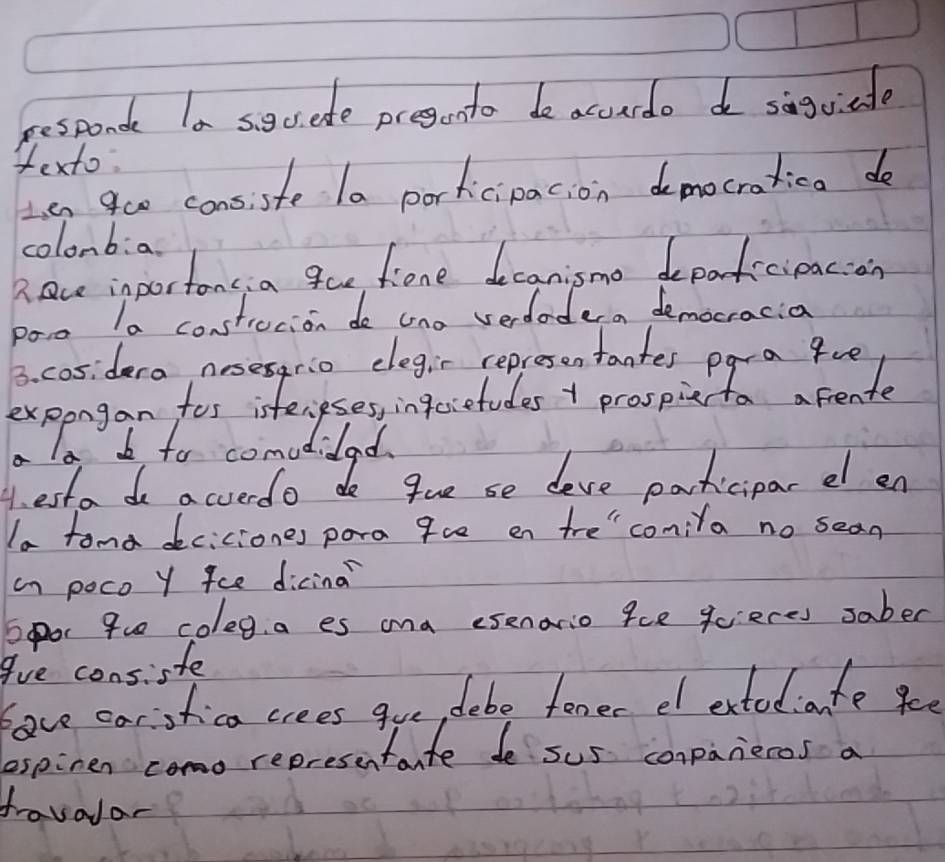 responde la siguiete pregunta de acuerdo de siguiete
texto:
1.en que consiste la participación democratica de
colonbia.
2.Que inportancia que tiene decanismo departicipación
para la constrocion de una verdadera democracia
3.cosidera nesesario elegir representantes para que,
expongan tus isteripses, inquietudes y prospierta afrente
a la b tu comudidad.
4.esta de acuerdo de que se deve participar el en
la toma deciciones para que en tre "comiya no sean
un poco y que dicina"
5 por que colegia es una esenario que quieres saber
que consiste
6.que caristica crees que, debe tener el extudiante que
espinen como representante de sus conpañeros a
travalar